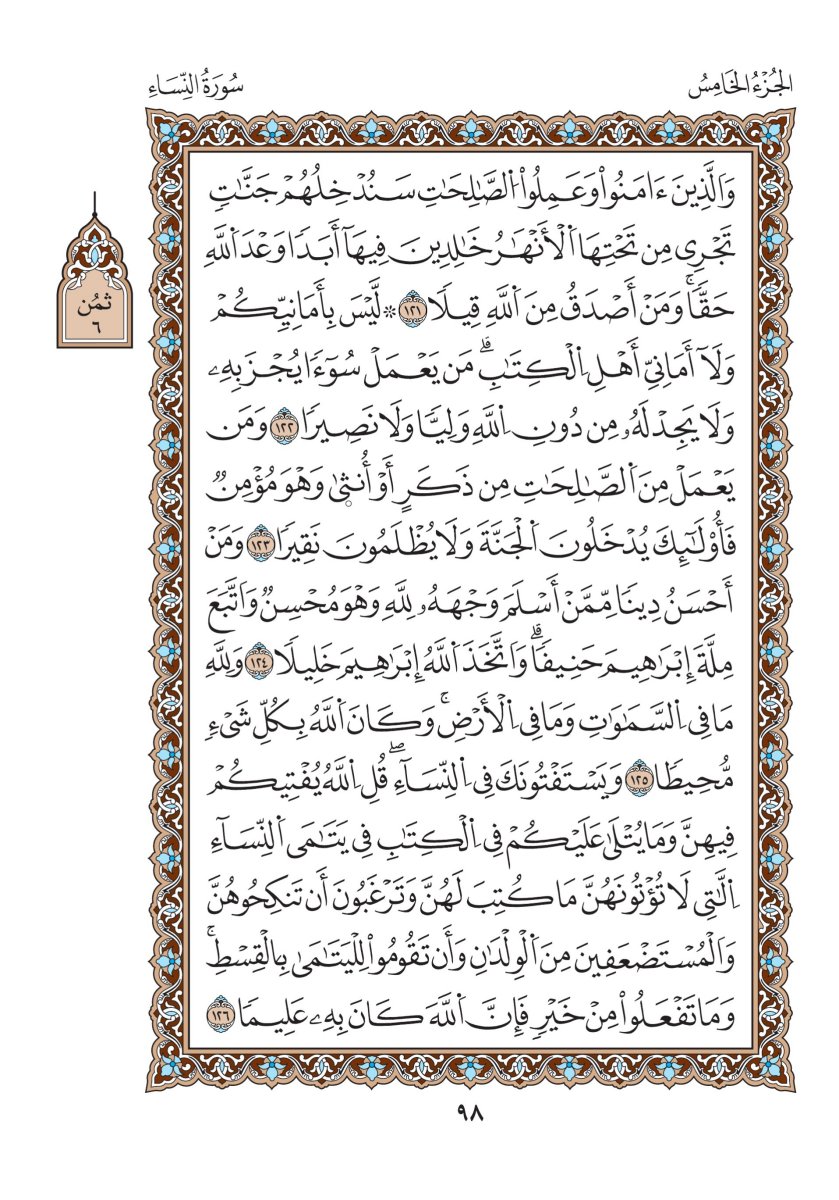 الجُزْءُ الخَامِسُ
سُورَةُ النِّسَاءِ
وَالَّذِينَ ءَامَنُواْ وَعَمِلُواْ اُ۬لصَّٰلِحَٰتِ سَنُدْخِلُهُمْ جَنَّٰتٖ
تَجْرِے مِن تَحْتِهَا اَ۬لْأَنْهَٰرُ خَٰلِدِينَ فِيهَآ أَبَدٗا وَعْدَ اَ۬للَّهِ
حَقّٗاۚ وَمَنْ أَصْدَقُ مِنَ اَ۬للَّهِ قِيلٗا ١٢١ ۞ لَّيْسَ بِأَمَانِيِّكُمْ
وَلَآ أَمَانِيِّ أَهْلِ اِ۬لْكِتَٰبِۗ مَن يَعْمَلْ سُوٓءٗا يُجْزَ بِهِۦ
وَلَا يَجِدْ لَهُۥ مِن دُونِ اِ۬للَّهِ وَلِيّٗا وَلَا نَصِيرٗا ١٢٢ وَمَن
يَعْمَلْ مِنَ اَ۬لصَّٰلِحَٰتِ مِن ذَكَرٍ أَوْ أُنث۪ىٰ وَهْوَ مُؤْمِنٞ
فَأُوْلَٰٓئِكَ يُدْخَلُونَ اَ۬لْجَنَّةَ وَلَا يُظْلَمُونَ نَقِيرٗا ١٢٣ وَمَنْ
أَحْسَنُ دِينٗا مِّمَّنْ أَسْلَمَ وَجْهَهُۥ لِلَّهِ وَهْوَ مُحْسِنٞ وَاتَّبَعَ
مِلَّةَ إِبْرَٰهِيمَ حَنِيفٗاۗ وَاَتَّخَذَ اَ۬للَّهُ إِبْرَٰهِيمَ خَلِيلٗا ١٢٤ وَلِلَّهِ
مَا فِے اِ۬لسَّمَٰوَٰتِ وَمَا فِے اِ۬لْأَرْضِۚ وَكَانَ اَ۬للَّهُ بِكُلِّ شَےْءٖ
مُّحِيطٗا ١٢٥ وَيَسْتَفْتُونَكَ فِے اِ۬لنِّسَآءِۖ قُلِ اِ۬للَّهُ يُفْتِيكُمْ
فِيهِنَّ وَمَا يُتْلَىٰ عَلَيْكُمْ فِے اِ۬لْكِتَٰبِ فِے يَتَٰمَى اَ۬لنِّسَآءِ
اِ۬لَّٰتِے لَا تُؤْتُونَهُنَّ مَا كُتِبَ لَهُنَّ وَتَرْغَبُونَ أَن تَنكِحُوهُنَّ
وَالْمُسْتَضْعَفِينَ مِنَ اَ۬لْوِلْدَٰنِ وَأَن تَقُومُواْ لِلْيَتَٰمَىٰ بِالْقِسْطِۚ
وَمَا تَفْعَلُواْ مِنْ خَيْرٖ فَإِنَّ اَ۬للَّهَ كَانَ بِهِۦ عَلِيمٗا ١٢٦
ثُمُن
٦
٩٨